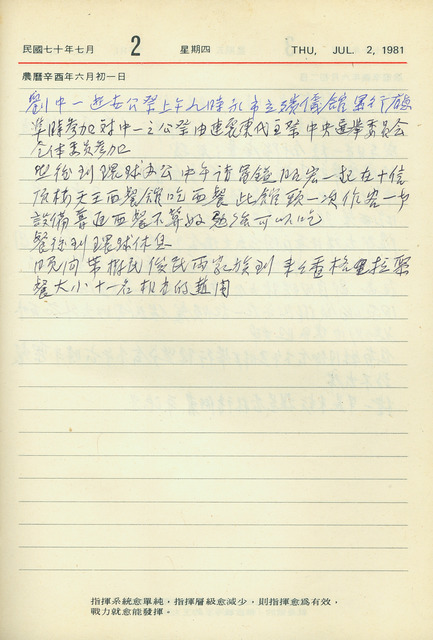 民國七十年七月 2 星期四 THU, JUL. 2, 1981
農曆辛酉年六月初一日
劉中一逝世公祭上午九時永市立殯儀館舉行
準時參加劉中一之公祭由連震東代主祭中央選舉委員會
全体委員參加
然後到環球办公中午請 一起在十信
頂樓天王西餐館吃西餐此館頭一次作客一切
設備 西餐不算好 可以吃
餐後到環球休息
晚间 民俊民两家族到 香格里拉聚
餐大小十一名
指揮系統愈單純，指揮層級愈減少，則指揮愈爲有效，
戰力就愈能發揮。